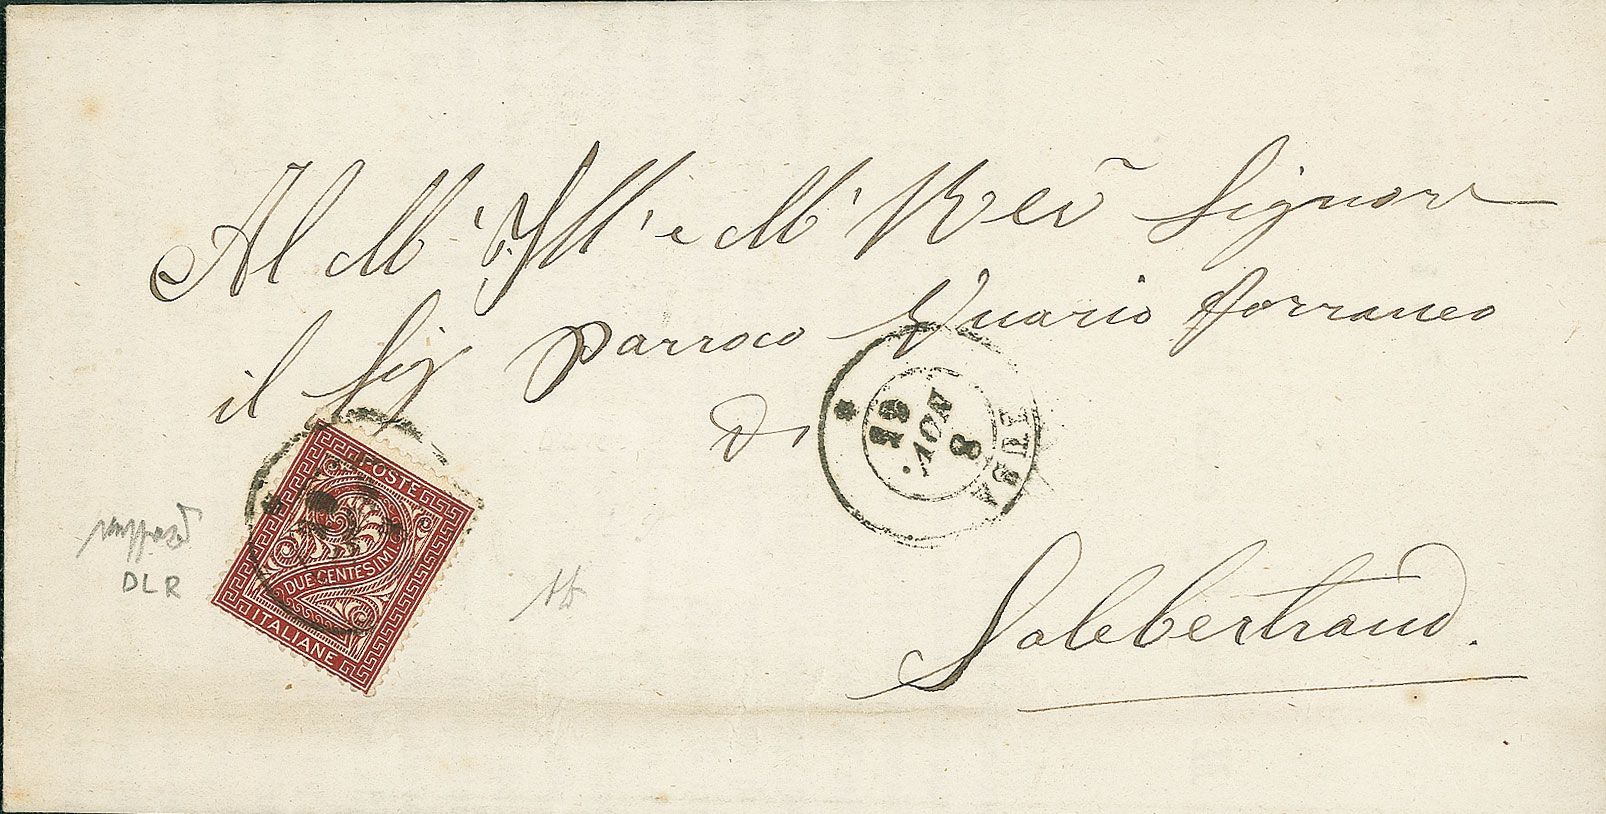 Al M' Ill' e M' Reṽ Signore
il Sig Parroco Vicario Forraneo
di
Salebertrand.
SUSA
19
NOV.
8
POSTE
DUE CENTESIMI
ITALIANE
DLR